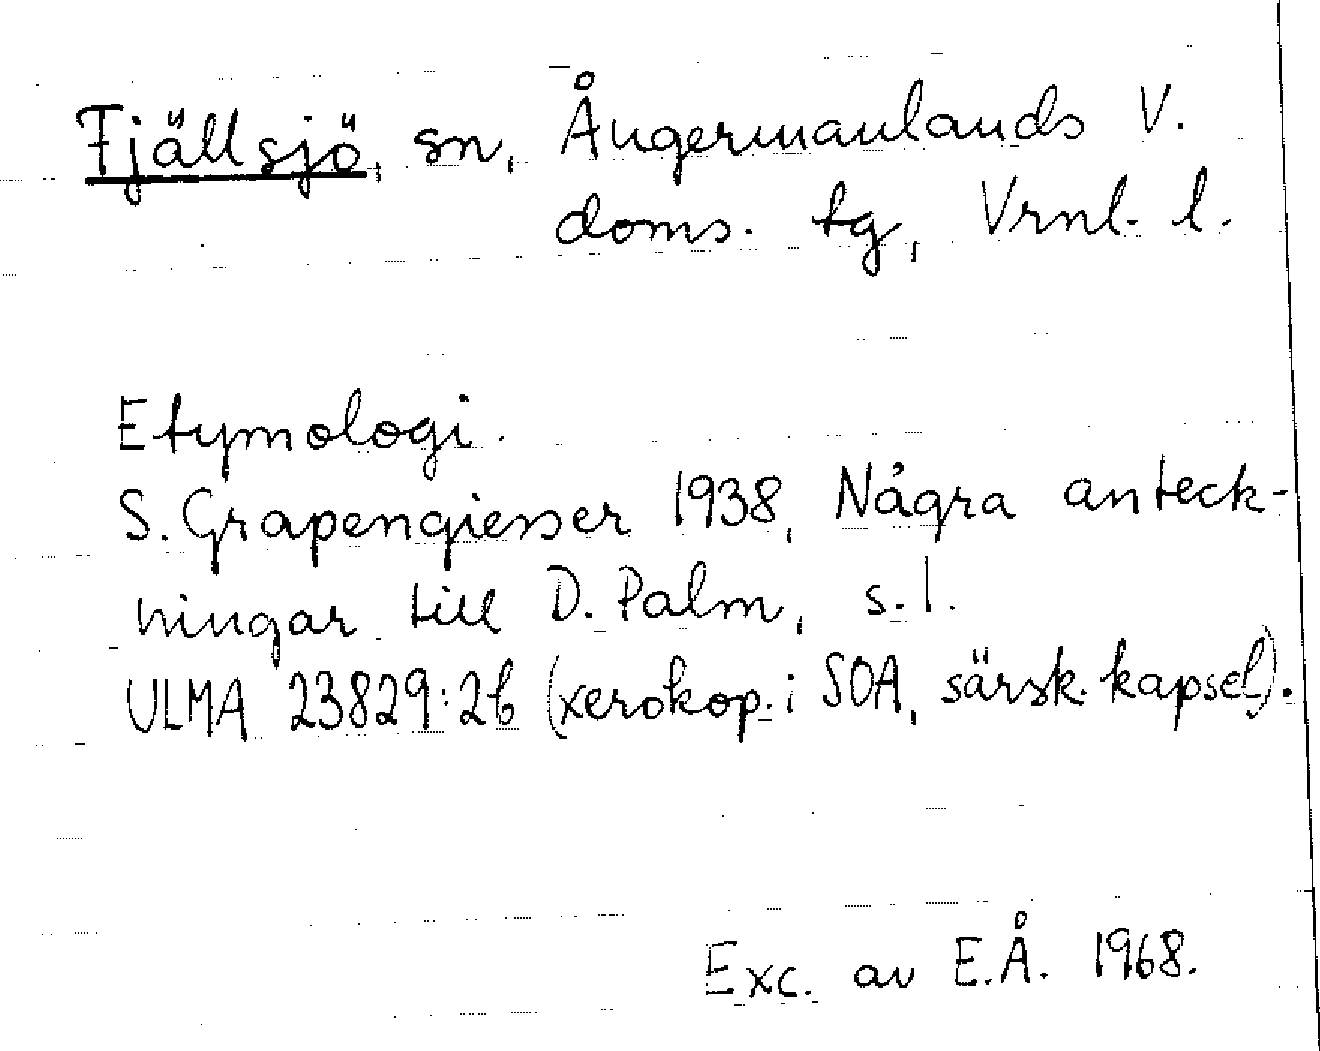 Fjällsjö, sn, Ångermanlands V.
doms. tg, Vrnl. l.
Etymologi.
S. Grapengiesser 1938, Några anteck-
ningar till D. Palm, s. 1.
ULMA 23829:2b (xerokop. i SOA, särsk. kapsel).
Exc. av E.Å. 1968.